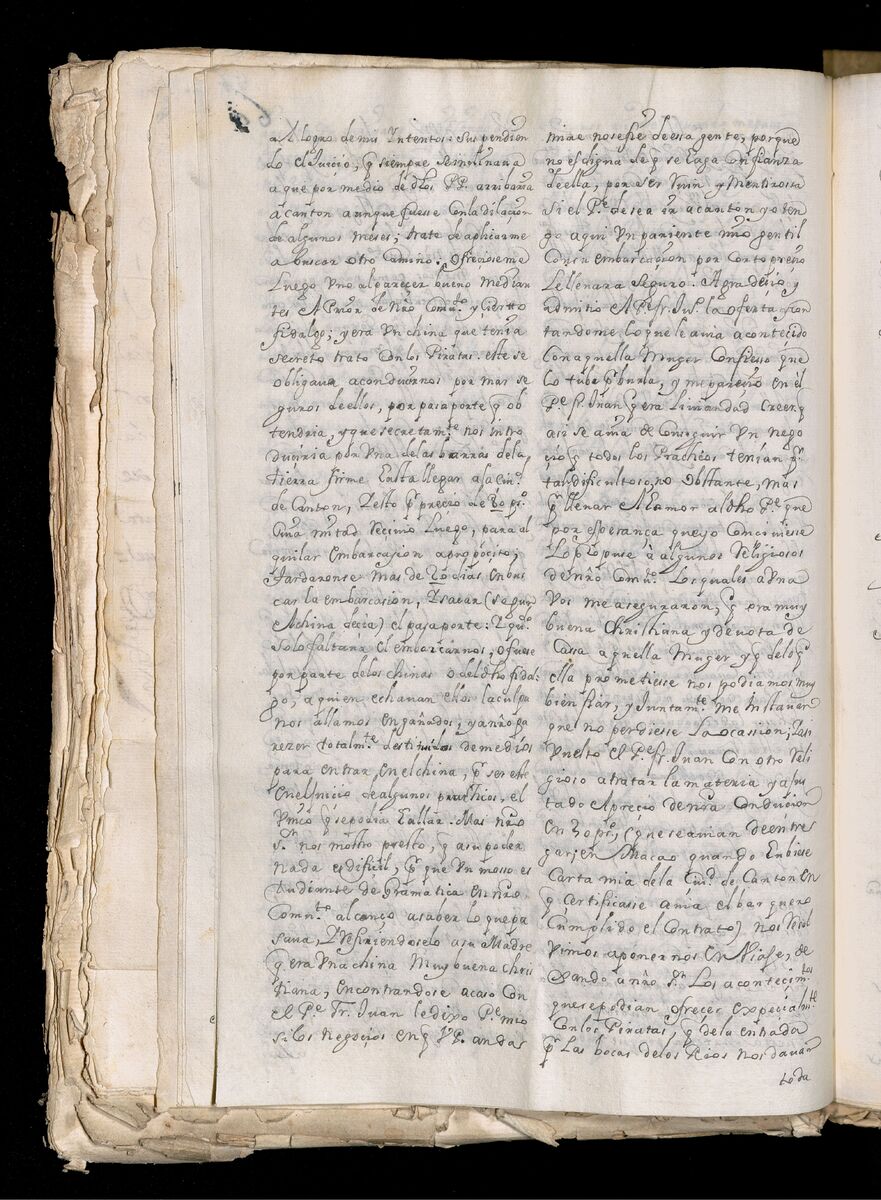 al logro de mis Intentos: suspendien
do el Juicio, q siempre se inclinaua
a que por medio de dhos PP. arribaria
a canton aunque fuesse con la dilacion
de algunos meses; trate de aplicarme
a buscar otro Camino: ofrecioseme
Luego vno al pareçer bueno median
tes de nro Comto. y Ciertto
fidalgo; y era vn china que tenia
secreto trato Con los Piratas: este se
obligaua a conducirnos por mar se
guros de ellos, por pasaporte q ob
tendria, y que secretamte. nos intro
duciria por vna de las barras de la
tierra firme hasta llegar a la ciud.
de Canton, Y esto pr precio de ps.
Cuia mitad recivio Luego, para al
quilar embarcasion aproposito;
tardaronse mas de dias en bus
car la embarcasion, Y sacar (segun
el china decia) el pasaporte: Y qdo.
solo faltaua el embarcarnos, o fuesse
por parte delos chinas o del dho fidal
go, a quien echauan ellos la culpa
nos allamos engañados, y a nro pa
rezer totalmte. destituidos de medios
para entrar en el china, pr ser este
en el Juicio de algunos practicos, el
vnico q se podia hallar. Mas nro
Sr. nos mostro presto, q a su poder
nada es dificil, pr que vn mosso es
tudiante de Gramatica en nro
Comto. alcanço a saber lo que pa
saua, Y refiriendoselo a su Madre
q era vna china muy buena chris
tiana, encontrandose acaso con
el Pe. Fr. Juan le dixo Pe. mio
si los negocios en q VP. andas
mire no se fie de essa gente, porque
no es digna de q se haga confianza
de ella, por ser ruin y mentirossa
si el Pe. desea ir a canton yo ten
go aqui vn pariente mio gentil
con su embarcaçion por corto preçio
Le lleuara seguro. Agradecio, y
admitio el Pe. fr. Ju. la oferta y con
tandome lo que le auia acontecido
con aquella muger confiesso que
lo tube pr burla, y mi pareçio en el
Pe. fr. Juan q era liuiandad creer q
asi se auia de conseguir vn nego
çio q todos los Practicos tenian pr
tan dificultoso, no obstante, mas
pr lleuar el amor al dho Pe. que
por esperança que yo conciuiesse
Lo propuse a algunos Religiosos
de nro Comto. Los quales a vna
vos me aseguraron, q era muy
buena christiana y deuota de
Casa aquella muger y q de lo q
ella prometiesse nos podiamos muy
bien fiar, y Juntamte. me instauan
que no perdiesse la ocassion; Y asi
vuesto el Pe. fr. Juan con otro reli
gioso a tratar la materia y ajus
tado el precio de nra conduçion
en 30 ps. (que se auian de entre
gar en Macao quando hubiese
Carta mia de la Ciud. de Canton en
q certificasse auia el barquero
Cumplido el contrato) nos resol
vimos a ponernos en Viaje, de
xando a nro Sr. Los acontecimtos
que se podian ofrecer especialmte
con los Piratas, q de la entrada
pr Las bocas de los Rios nos dauan
toda